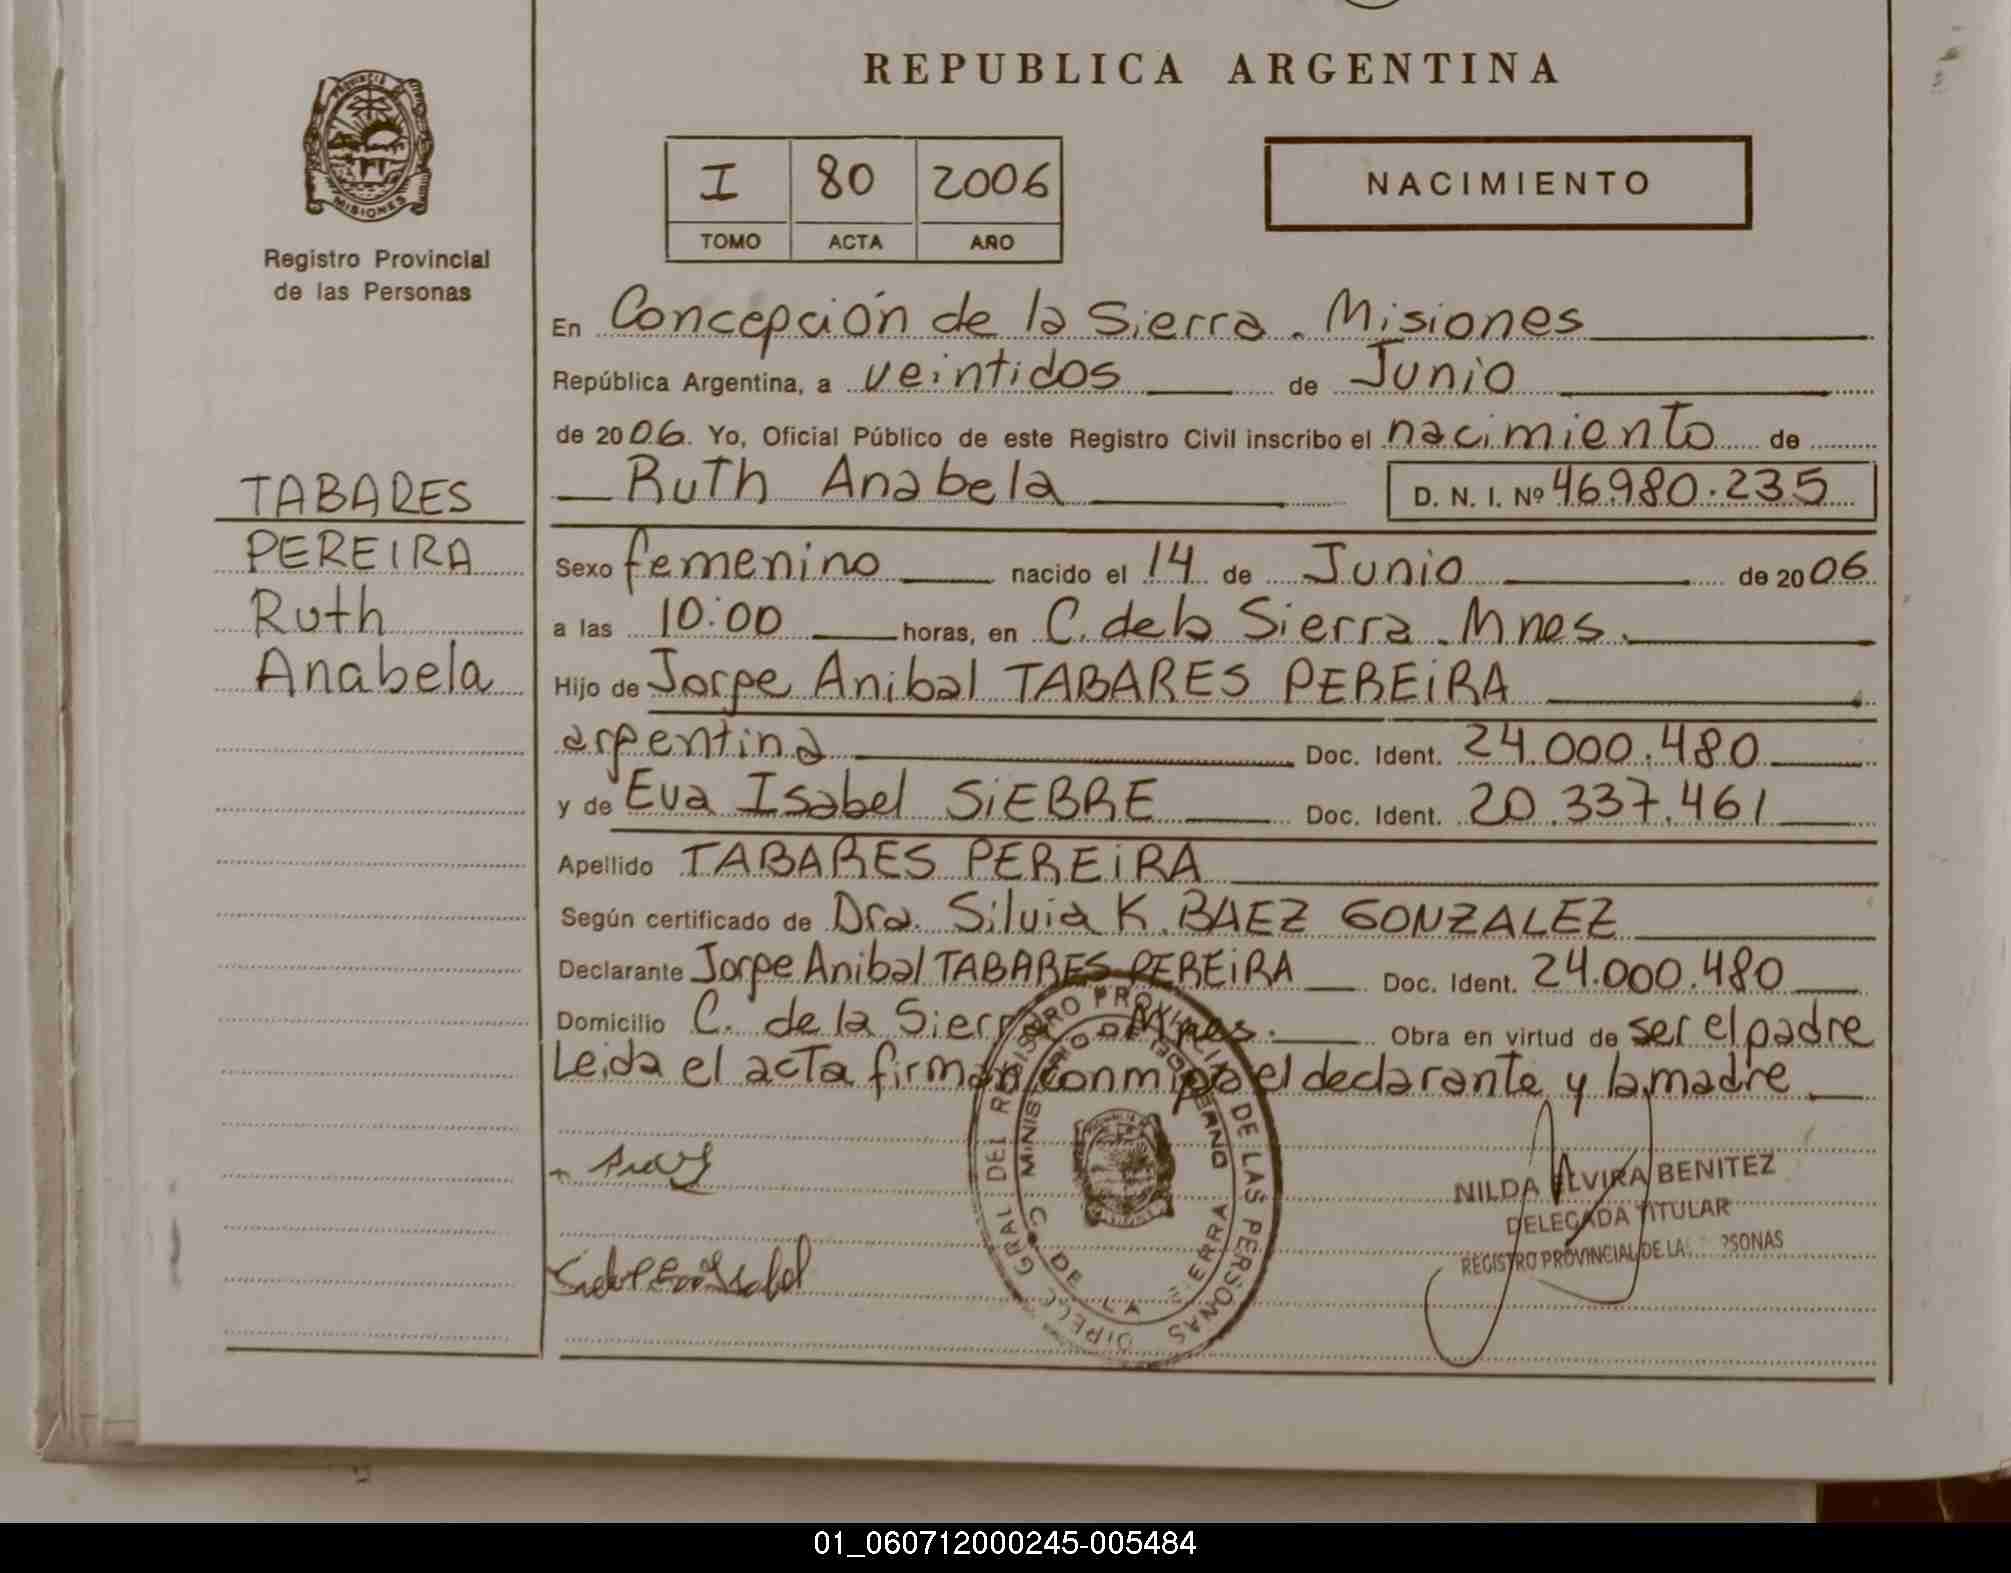 REPUBLICA ARGENTINA
PROVINCIA
MISIONES
Registro Provincial
de las Personas
I 80 2006
TOMO ACTA AÑO
NACIMIENTO
En Concepción de la Sierra. Misiones
República Argentina, a veintidos de Junio
de 2006. Yo, Oficial Público de este Registro Civil inscribo el nacimiento de
Ruth Anabela D. N. I. Nº 46.980.235
TABARES
PEREIRA
Ruth
Anabela
Sexo femenino nacido el 14 de Junio de 2006
a las 10:00 horas, en C. de la Sierra. Mnes.
Hijo de Jorge Anibal TABARES PEREIRA
argentina Doc. Ident. 24.000.480
y de Eva Isabel SIEBRE Doc. Ident. 20.337.461
Apellido TABARES PEREIRA
Según certificado de Dra. Silvia K. BAEZ GONZALEZ
Declarante Jorge Anibal TABARES PEREIRA Doc. Ident. 24.000.480
Domicilio C. de la Sierra Mnes. Obra en virtud de ser el padre
Leida el acta firman conmigo el declarante y la madre
GRAL DEL REGISTRO PROVINCIAL DE LAS PERSONAS
MINISTERIO DE GOBIERNO
C. DE LA SIERRA
NILDA ELVIRA BENITEZ
DELEGADA TITULAR
REGISTRO PROVINCIAL DE LA
01_060712000245-005484